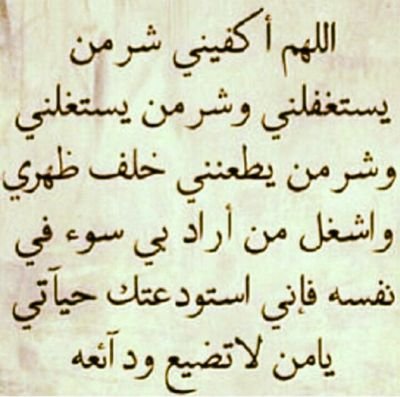 اللهم أكفيني شر من
يستغفلني وشر من يستغلني
وشر من يطعنني خلف ظهري
واشغل من أراد بي سوء في
نفسه فإني استودعتك حيآتي
يامن لاتضيع ودآئعه